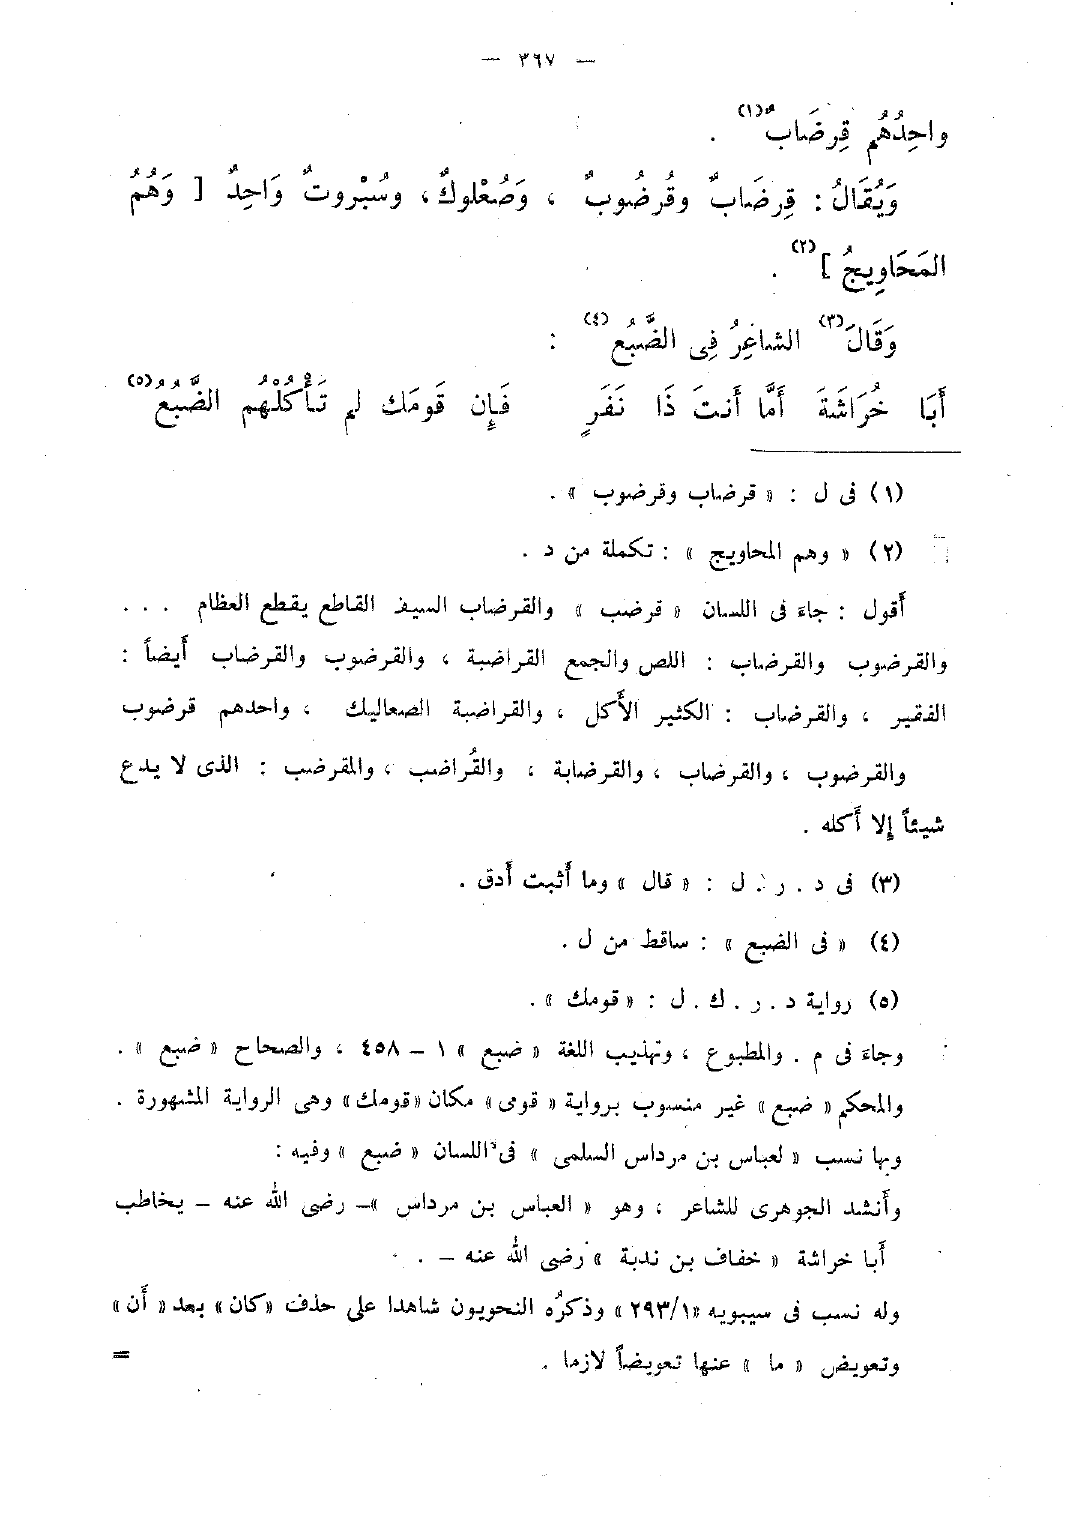 — ٣٦٧ —
واحِدُهُم قِرضَابٌ(١) .
وَيُقَالُ : قِرضَابٌ وقُرضُوبٌ ، وَصُعْلوكٌ ، وسُبْروتٌ وَاحِدٌ [ وَهُمُ
المَحَاوِيجُ ](٢) .
وَقَالَ(٣) الشاعِرُ فِى الضَّبُعِ(٤) :
أَبَا خُرَاشَةَ أَمَّا أَنتَ ذَا نَفَرٍ فَإِن قَومَك لم تَأْكُلْهُم الضَّبُعُ(٥)
(١) فى ل : « قرضاب وقرضوب » .
(٢) « وهم المحاويج » : تكملة من د .
أَقول : جاءَ فى اللسان « قرضب » والقرضاب السيف القاطع يقطع العظام . . .
والقرضوب والقرضاب : اللص والجمع القراضبة ، والقرضوب والقرضاب أَيضاً :
الفقير ، والقرضاب : الكثير الأَكل ، والقراضبة الصعاليك ، واحدهم قرضوب
والقرضوب ، والقرضاب ، والقرضابة ، والقُراضب ، والمقرضب : الذى لا يدع
شيئاً إِلا أَكله .
(٣) فى د . ر . ل : « قال » وما أَثبت أَدق .
(٤) « فى الضبع » : ساقط من ل .
(٥) رواية د . ر . ك . ل : « قومك » .
وجاءَ فى م . والمطبوع ، وتهذيب اللغة « ضبع » ١ – ٤٥٨ ، والصحاح « ضبع » .
والمحكم « ضبع » غير منسوب برواية « قومى » مكان « قومك » وهى الرواية المشهورة .
وبها نسب « لعباس بن مرداس السلمى » فى اللسان « ضبع » وفيه :
وأَنشد الجوهرى للشاعر ، وهو « العباس بن مرداس » – رضى الله عنه – يخاطب
أَبا خراشة « خفاف بن ندبة » رضى الله عنه – .
وله نسب فى سيبويه « ٢٩٣/١ » وذكرُه النحويون شاهدا على حذف « كان » بعد « أَن »
وتعويض « ما » عنها تعويضاً لازما .
=